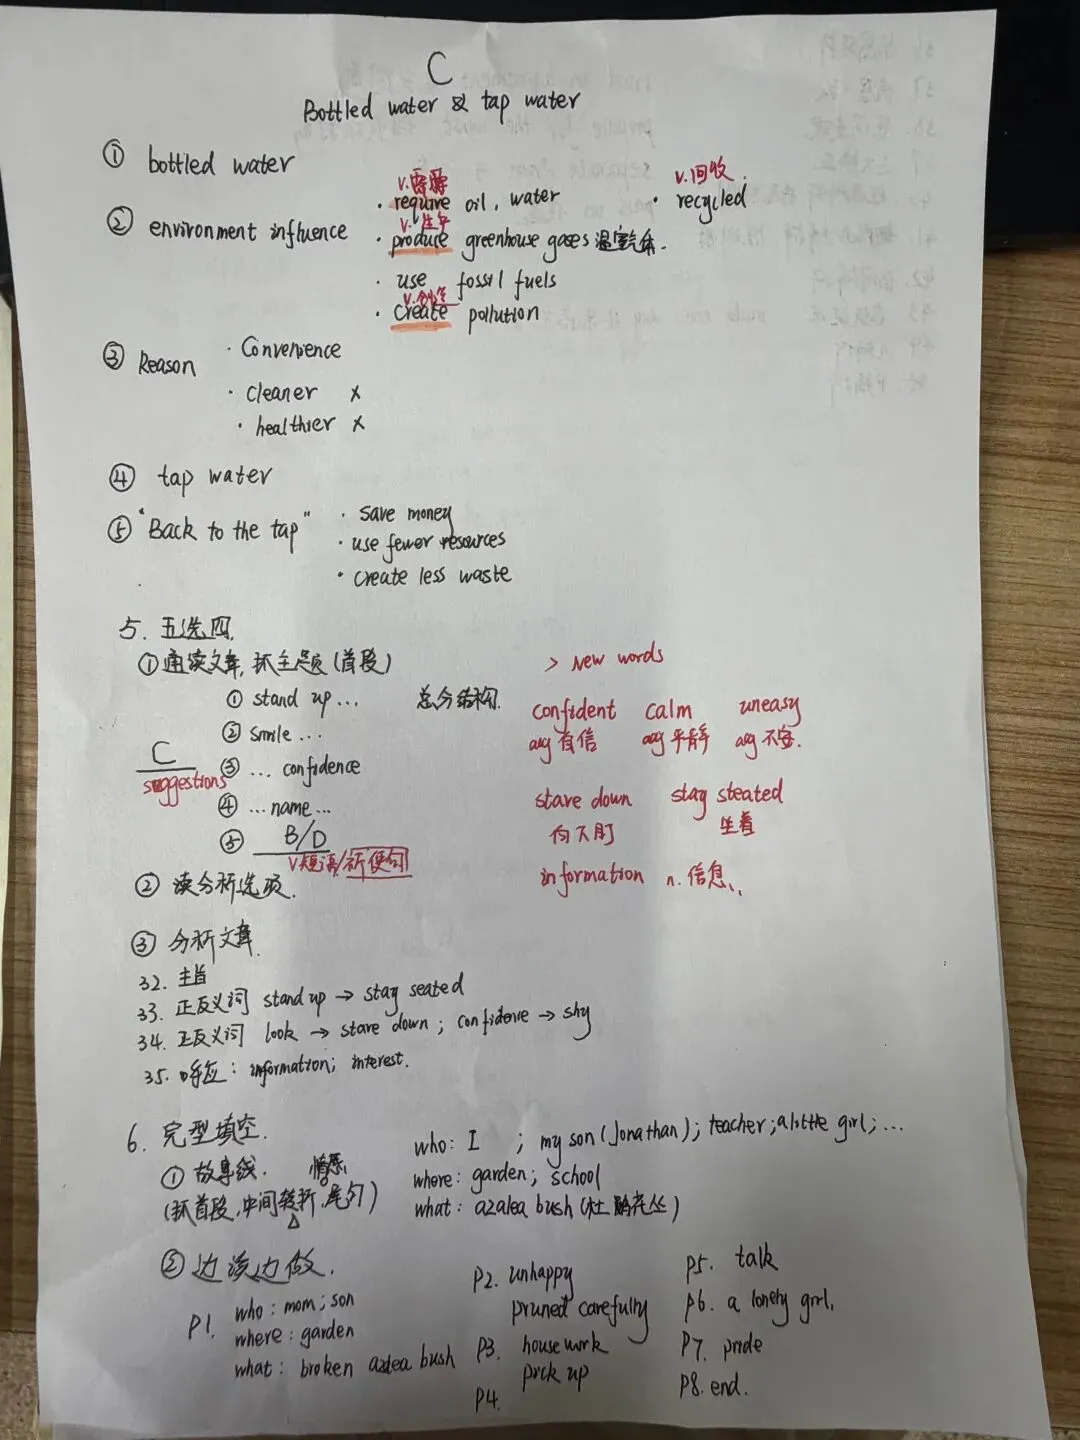 C
Bottled water & tap water
① bottled water
v.需要
v.回收.
· require oil, water · recycled
② environment influence
v.生产
· produce greenhouse gases 温室气体.
· use fossil fuels
v.创造
· create pollution
③ Reason · Convenience
· cleaner x
· healthier x
④ tap water
⑤ "Back to the tap" · save money
· use fewer resources
· create less waste
5. 五选四.
①通读文章,抓主题(首段)
> New words
① stand up ... 总分结构.
② smile ...
③ ... confidence
④ ... name ...
⑤ B/D
C
suggestions
v短语/祈使句
confident calm uneasy
adj 自信 adj 平静 adj 不安.
stare down stay steated
向下盯 坐着
information n. 信息.
② 读分析选项.
③ 分析文章.
32. 主旨
33. 正反义词 stand up → stay seated
34. 正反义词 look → stare down ; confidence → shy
35. 呼应: information; interest.
6. 完型填空.
① 故事线. 情感
(抓首段,中间转折,尾句)
who: I ; my son (Jonathan); teacher; a little girl; ...
where: garden; school
what: azalea bush (杜鹃花丛)
② 边读边做.
P1. who: mom; son
where: garden
what: broken azalea bush
P2. unhappy
pruned carefully
P3. housework
pick up
P4.
P5. talk
P6. a lonely girl.
P7. pride
P8. end.